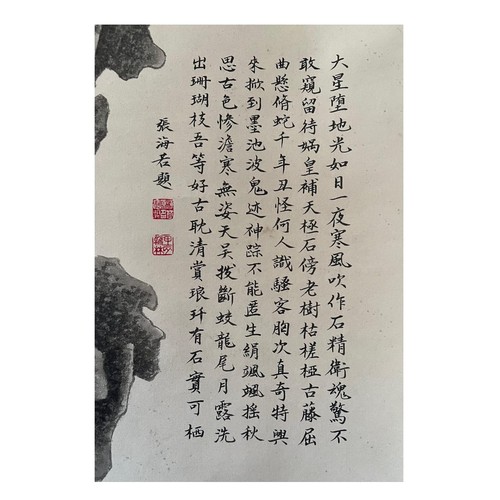 大星堕地光如日一夜寒風吹作石精衛魂驚不
敢窺留待媧皇補天極石傍老樹枯槎極古藤屈
曲懸脩蛇千年丑怪何人識騷客胸次真奇特興
來掀到墨池波鬼迹神踪不能匿生絹颯颯搖秋
思古色慘澹寒無姿天吴拔斷蛟龍尾月露洗
出珊瑚枝吾等好古耽清賞琅玕有石實可栖
張海若題